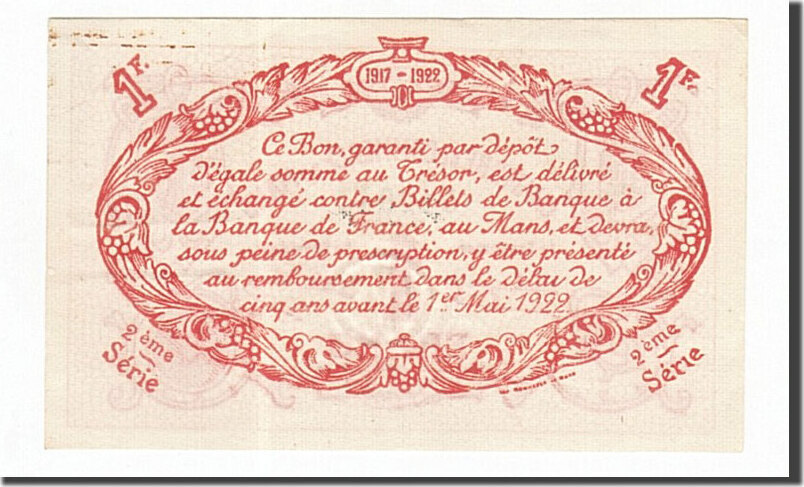 1F.
1917 - 1922
1F.
Ce Bon, garanti par dépôt
d'égale somme au Trésor, est délivré
et échangé contre Billets de Banque à
la Banque de France, au Mans, et devra,
sous peine de prescription, y être présenté
au remboursement dans le délai de
cinq ans avant le 1er Mai 1922
2ème
Série
2ème
Série